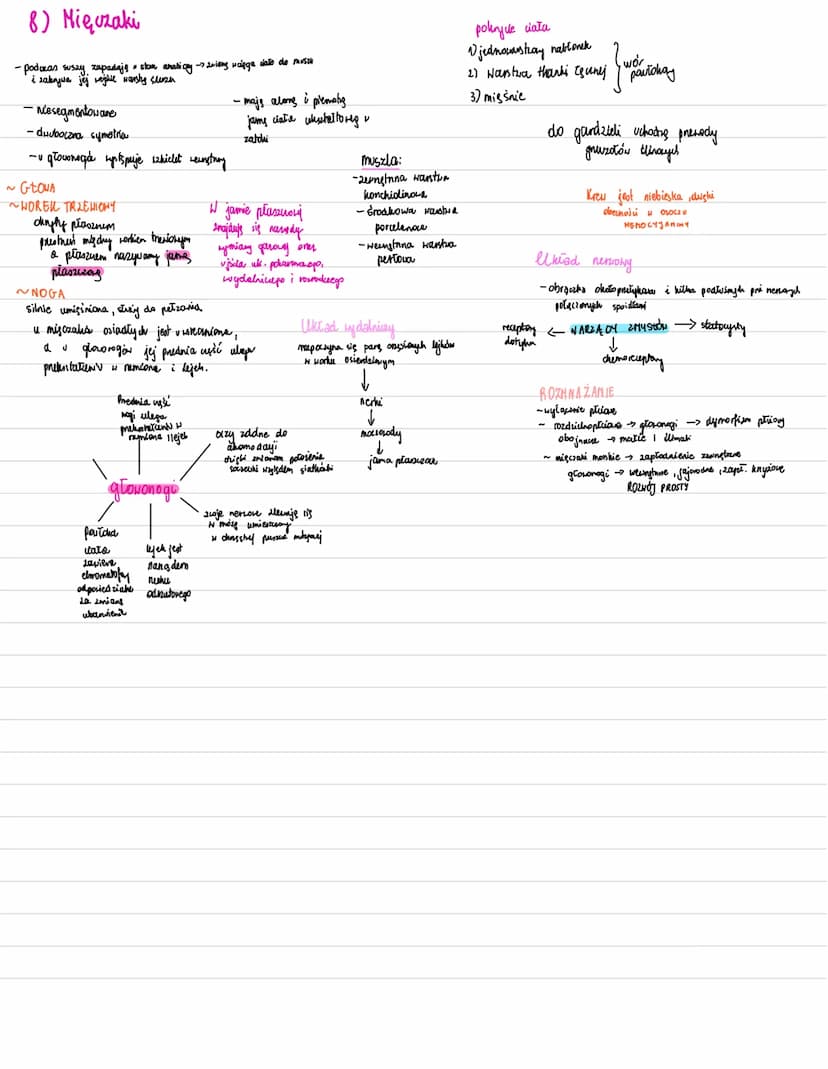 8) Mięczaki
- podczas suszy zapadają w stan anabiozy → zwierzę wciąga ciało do muszli
i zakrywa jej wejście warstwą śluzu
- niesegmentowane
- dwuboczna symetria
- u głowonogów występuje szkielet wewnętrzny
- mają celomę i pierwotną
jamę ciała ukształtowaną w
zatoki
~ GŁOWA
~ WOREK TRZEWIOWY
okryty płaszczem
przestrzeń między workiem trzewiowym
a płaszczem nazywamy jamą
płaszczową
~ NOGA
silnie umięśniona, służy do pełzania
u mięczaków osiadłych jest uwsteczniona,
a u głowonogów jej przednia część ulega
przekształceniu w ramiona i lejek.
W jamie płaszczowej
znajdują się narządy
wymiany gazowej oraz
ujścia uk. pokarmowego,
wydalniczego i rozrodczego
muszla:
- zewnętrzna warstwa
konchiolinowa
- środkowa warstwa
porcelanowa
- wewnętrzna warstwa
perłowa
Układ wydalniczy
rozpoczyna się parą orzęsionych lejków
w worku osierdziowym
↓
nerki
↓
moczowody
↓
jama płaszczowa
Przednia część
nogi ulega
przekształceniu w
ramiona i lejek
oczy zdolne do
akomodacji
dzięki zmianom położenia
soczewki względem siatkówki
głowonogi
zwoje nerwowe zlewają się
w mózg umieszczony
w chrzęstnej puszce mózgowej
powłoka
ciała
zawiera
chromatofory
odpowiedzialne
za zmianę
ubarwienia
lejek jest
narządem
ruchu
odrzutowego
pokrycie ciała
1) jednowarstwowy nabłonek
2) warstwa tkanki łącznej
3) mięśnie
wór
powłokowy
do gardzieli uchodzą przewody
gruczołów ślinowych
Krew jest niebieska, dzięki
obecności w osoczu
HEMOCYJANINY
Układ nerwowy
- obrączka okołoprzełykowa i kilka podłużnych pni nerwowych
połączonych spoidłami
receptory
dotyku
← NARZĄDY ZMYSŁÓW → statocysty
↓
chemoreceptory
ROZMNAŻANIE
- wyłącznie płciowe
- rozdzielnopłciowe → głowonogi → dymorfizm płciowy
obojnacze → małże i ślimaki
~ mięczaki morskie → zapłodnienie zewnętrzne
głowonogi → wewnętrzne, jajorodne, zapł. krzyżowe
ROZWÓJ PROSTY